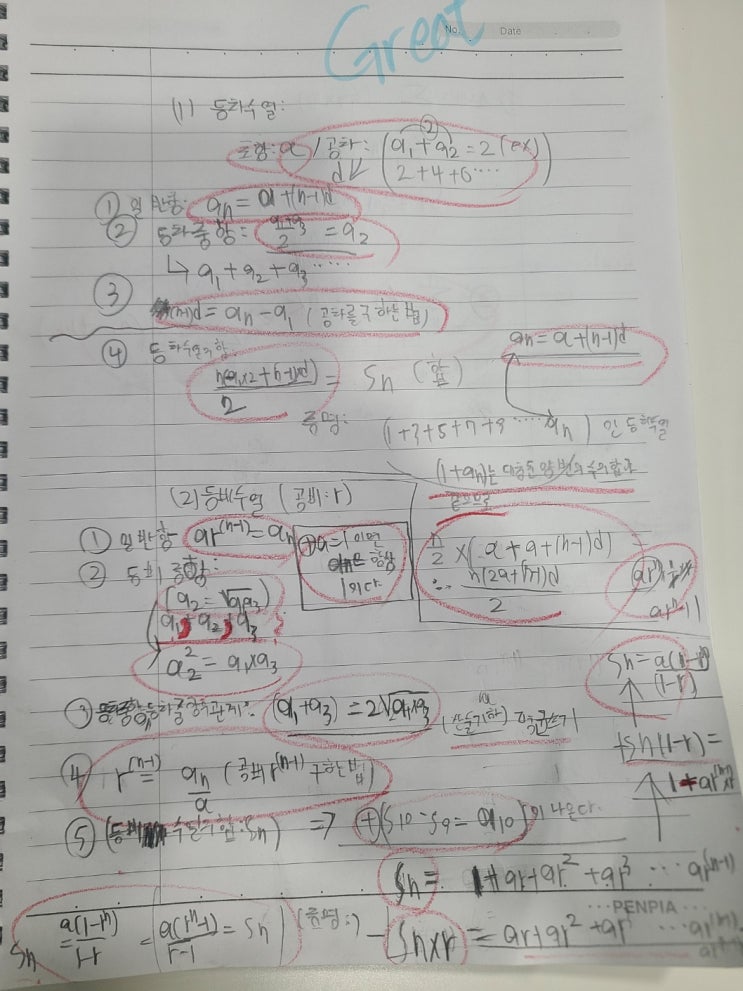 Great
No. Date
(1) 등차수열:
초항: a / 공차: d (a₁+a₂=2 (ex)
② 2+4+6‥‥)
① 일반항: aₙ = a+(n-1)d
② 등차중항: (a₁+a₃)/2 = a₂
↳ a₁+a₂+a₃‥‥
③ (n-1)d = aₙ-a₁ (공차를 구하는 법)
④ 등차수열의 합
n(a₁×2+(n-1)d)/2 = Sₙ (합)
aₙ = a+(n-1)d
증명: (1+3+5+7+9 ‥‥ aₙ) 인 등차수열
(1+aₙ)는
n/2 ×(a+a+(n-1)d)
∴ n(2a+(n-1)d)/2
(2) 등비수열 (공비: r)
① 일반항 ar⁽ⁿ⁻¹⁾ = aₙ
이면 항상 1이다.
② 등비중항:
(a₂ = √a₁a₃
a₁, a₂, a₃
a₂² = a₁×a₃
③ (a₁+a₃) = 2√a₁×a₃ (산술기하) 평균쓰기
④ r⁽ⁿ⁻¹⁾ = aₙ/a (공비 r⁽ⁿ⁻¹⁾ 구하는 법)
⑤ (등비수열의 합: Sₙ) ⇒ + (S₁₀-S₉ = a₁₀) 이 나온다.
Sₙ = a(1-rⁿ)/(1-r) = a(rⁿ-1)/r-1 = Sₙ
(증명:)
Sₙ = 1+ar+ar²+ar³ ⋯ ar⁽ⁿ⁻¹⁾
- Sₙ×r = ar+ar²+ar ⋯
Sₙ(1-r) =
PENPIA